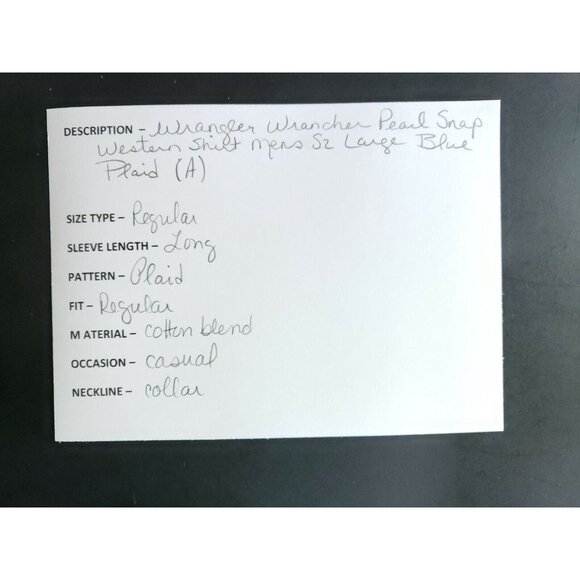 DESCRIPTION – Wrangler Wrancher Pearl Snap
Western Shirt Mens Sz Large Blue
Plaid (A)
SIZE TYPE – Regular
SLEEVE LENGTH – Long
PATTERN – Plaid
FIT – Regular
M ATERIAL – cotton blend
OCCASION – casual
NECKLINE – collar